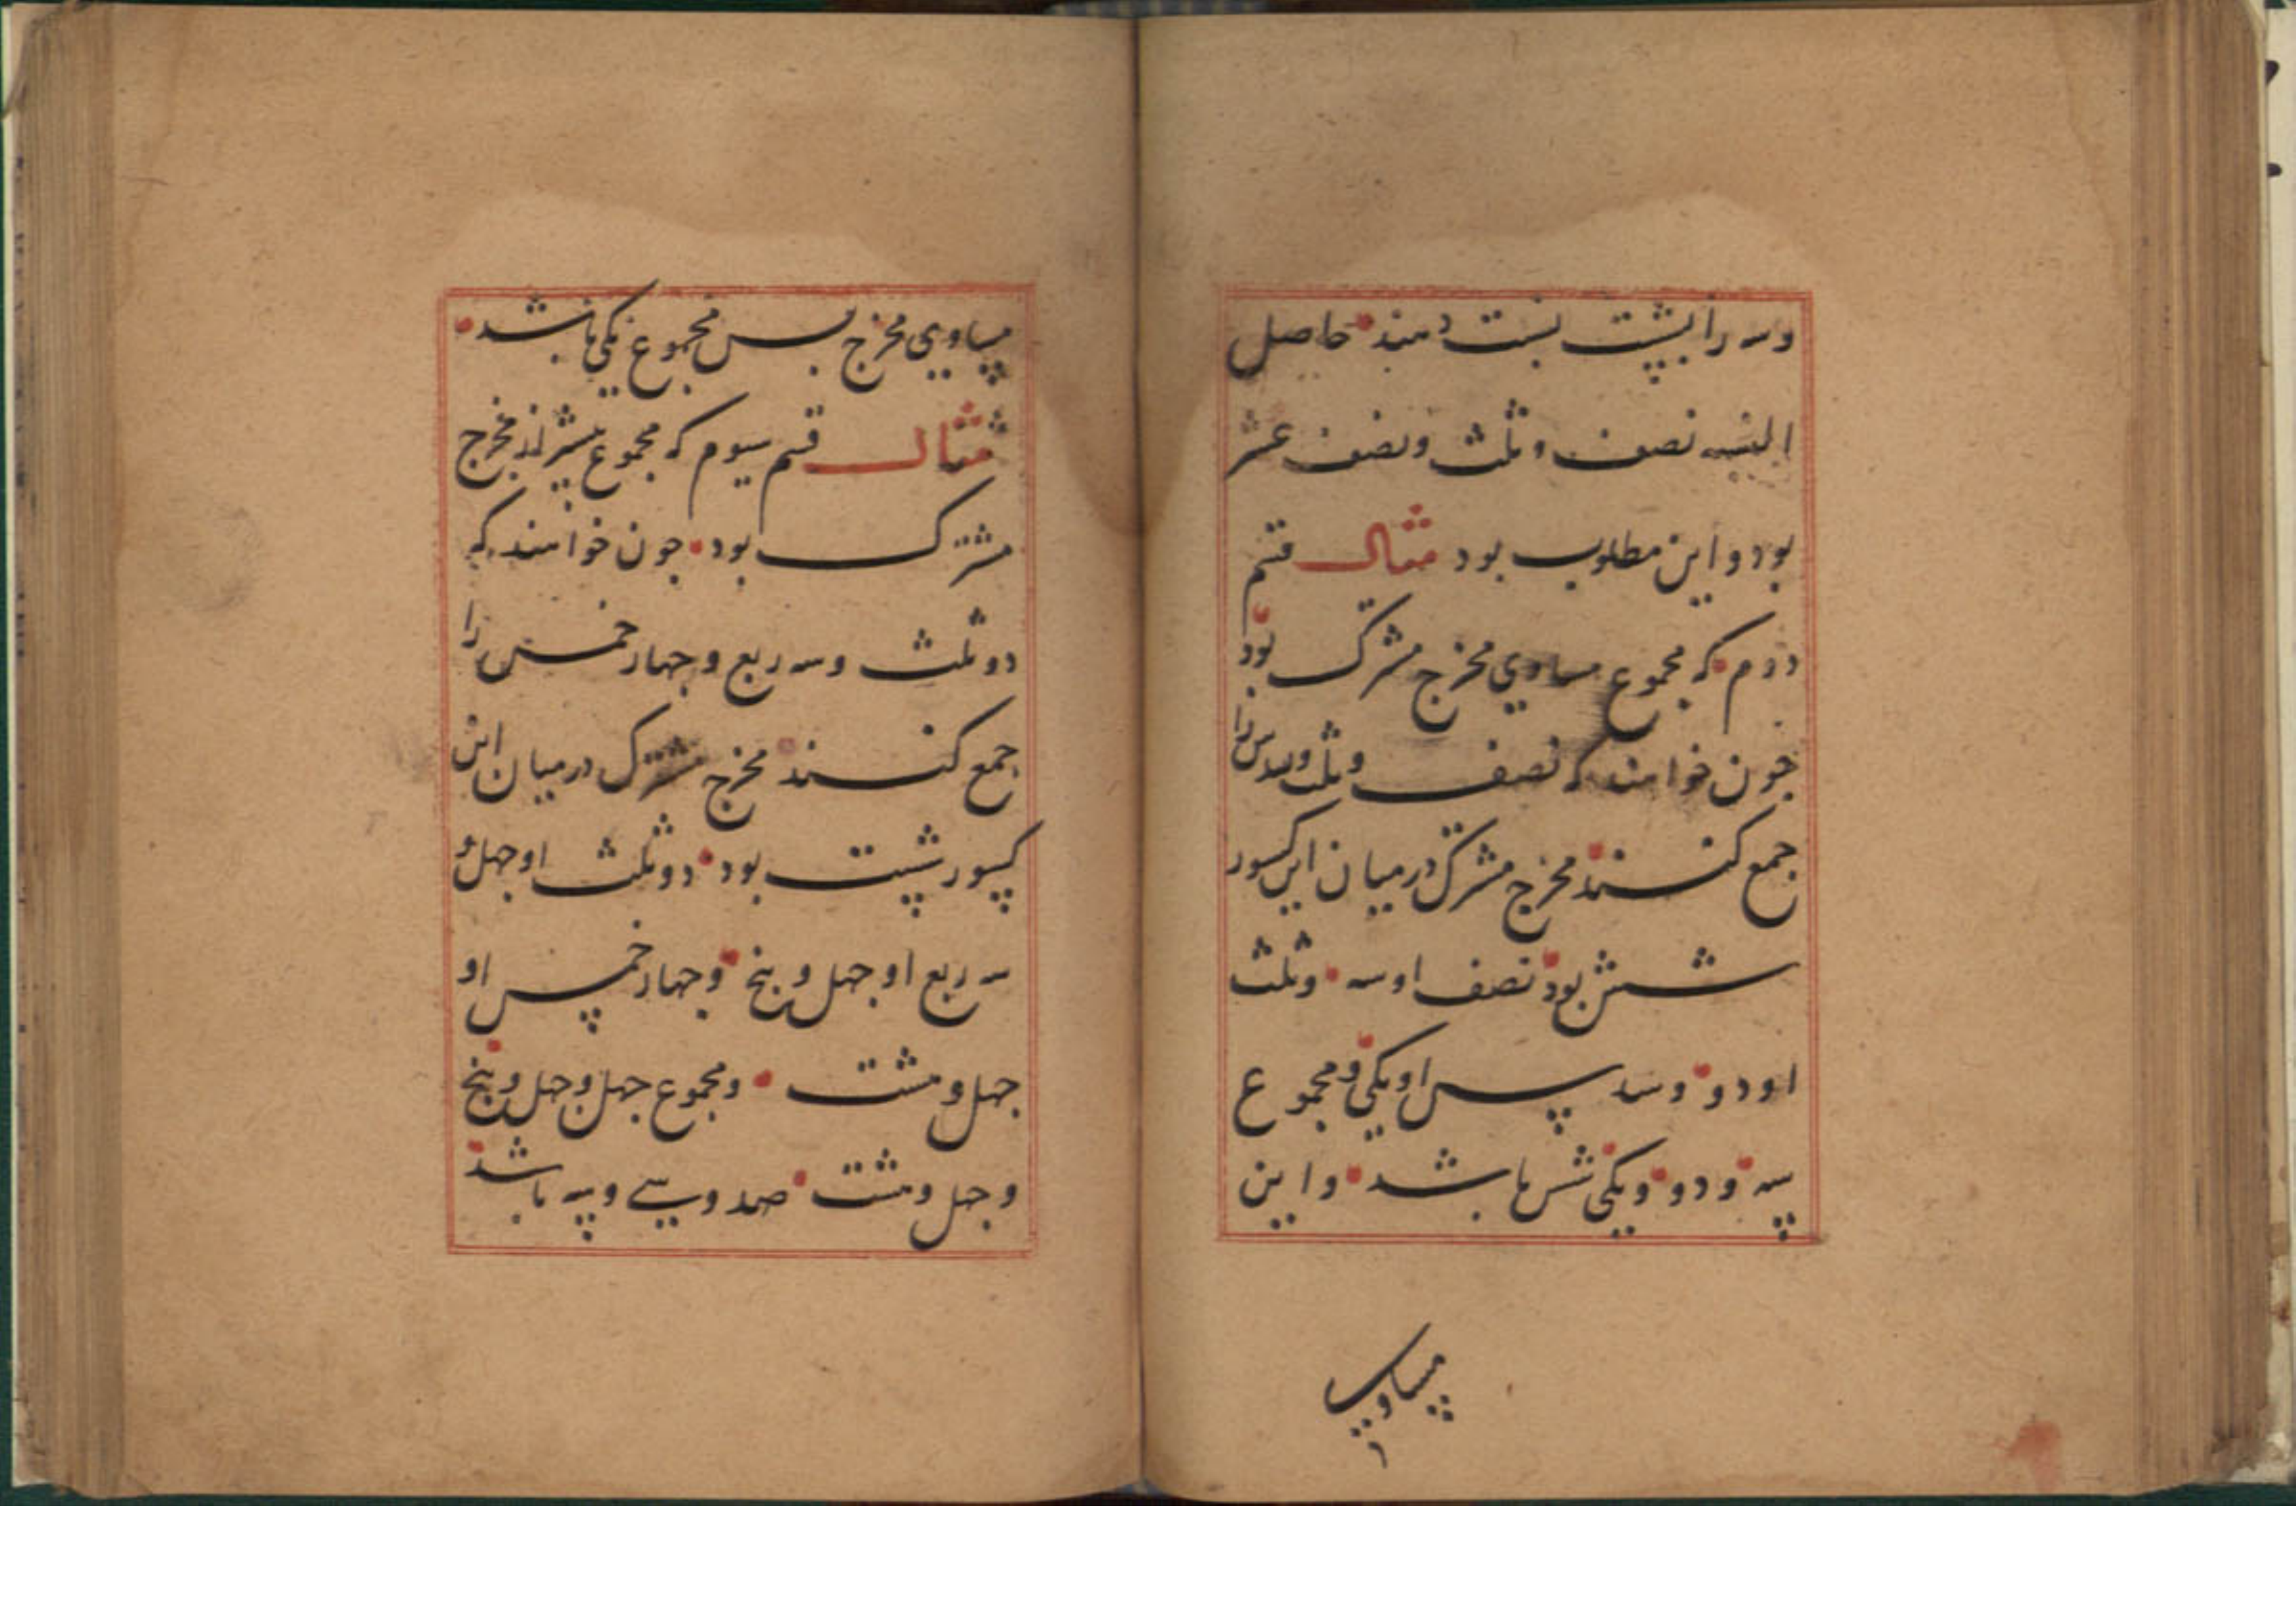 وسه را ببیست نسبت دهند حاصل
النسبه نصف و ثلث و نصف عشر
بود و این مطلوب بود مثال قسم
دوم که مجموع مساوی مخرج مشترک بود
جون خواهند که نصف و ثلث و سدس را
جمع کنند مخرج مشترک درمیان این کسور
شش بود نصف او سه و ثلث
او دو و سدس او یکی و مجموع
سه و دو و یکی شش باشد و این
مساوی
مساوی مخرج بس مجموع یکی باشد
مثال قسم سیوم که مجموع بیشتر از مخرج
مشترک بود جون خواهند که
دو ثلث و سه ربع و جهار خمس را
جمع کنند مخرج مشترک درمیان این
کسور شست بود دو ثلث او جهل و
سه ربع او جهل و بنج و جهار خمس او
جهل و هشت و مجموع جهل و جهل و بنج
و جهل و هشت صد و سی و سه باشد